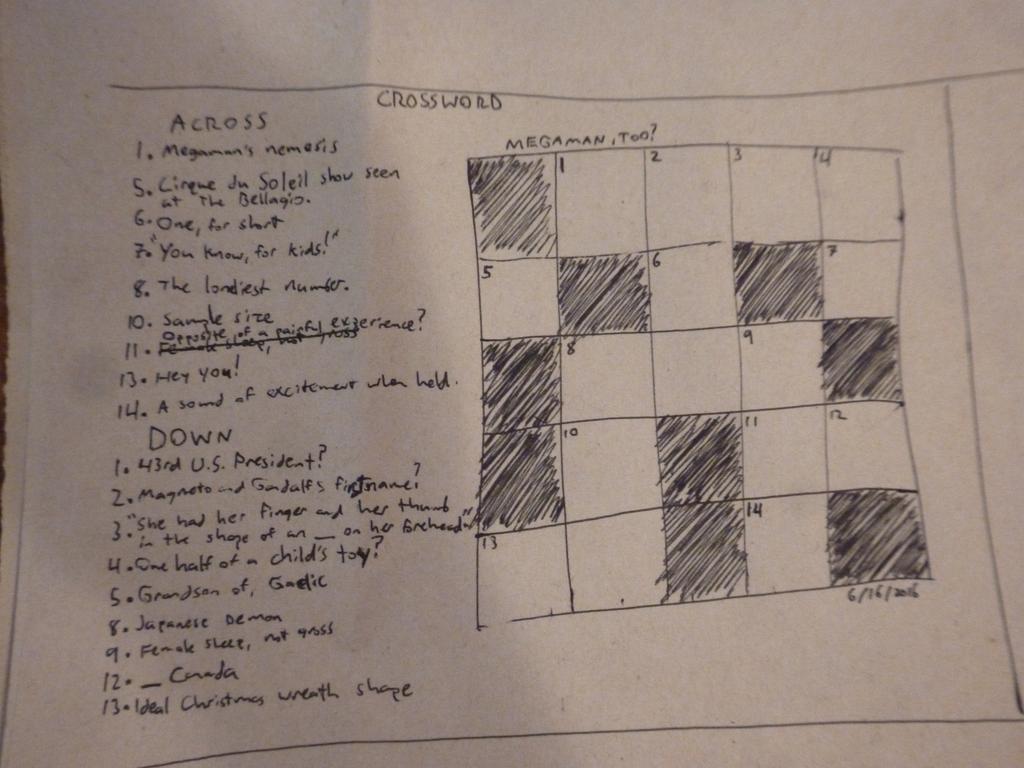 CROSSWORD
ACROSS
1. Megaman's nemesis
5. Cirque du Soleil show seen
at The Bellagio.
6. One, for short
7. "You know, for kids!"
8. The londiest number.
10. Sample size
11. Opposite of a painful experience?
13. Hey you!
14. A sound of excitement when held.
DOWN
1. 43rd U.S. President?
2. Magneto and Gandalf's first name?
3. "She had her finger and her thumb
in the shape of an __ on her forehead"
4. One half of a child's toy?
5. Grandson of, Gaelic
8. Japanese Demon
9. Female sheep, not gross
12. __ Canada
13. Ideal Christmas wreath shape
MEGAMAN, TOO?
1 2 3 4
5 6 7
8 9
10 11 12
13 14
6/16/2016